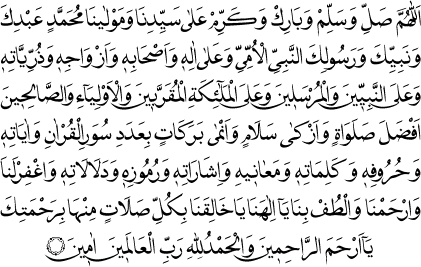 اَللّٰهُمَّ صَلِّ وَسَلِّمْ وَبَارِكْ وَكَرِّمْ عَلٰى سَيِّدِنَا وَمَوْلٰينَا مُحَمَّدٍ عَبْدِكَ
وَنَبِيِّكَ وَرَسُولِكَ النَّبِيِّ الْاُمِّيِّ وَعَلٰى اٰلِهٖ وَاَصْحَابِهٖ وَاَزْوَاجِهٖ وَذُرِّيَّاتِهٖ
وَعَلَى النَّبِيّٖنَ وَالْمُرْسَلٖينَ وَعَلَى الْمَلٰٓئِكَةِ الْمُقَرَّبٖينَ وَالْاَوْلِيَٓاءِ وَالصَّالِحٖينَ
اَفْضَلَ صَلَوَاةٍ وَاَزْكٰى سَلَامٍ وَاَنْمٰى بَرَكَاتٍ بِعَدَدِ سُوَرِ الْقُرْاٰنِ وَاٰيَاتِهٖ
وَحُرُوفِهٖ وَكَلِمَاتِهٖ وَمَعَانٖيهِ وَاِشَارَاتِهٖ وَرُمُوزِهٖ وَدَلَالَاتِهٖ وَاغْفِرْلَنَا
وَارْحَمْنَا وَالْطُفْ بِنَا يَٓا اِلٰهَنَا يَا خَالِقَنَا بِكُلِّ صَلَاتٍ مِنْهَا بِرَحْمَتِكَ
يَٓا اَرْحَمَ الرَّاحِمٖينَ وَالْحَمْدُ لِلّٰهِ رَبِّ الْعَالَمٖينَ اٰمٖينَ